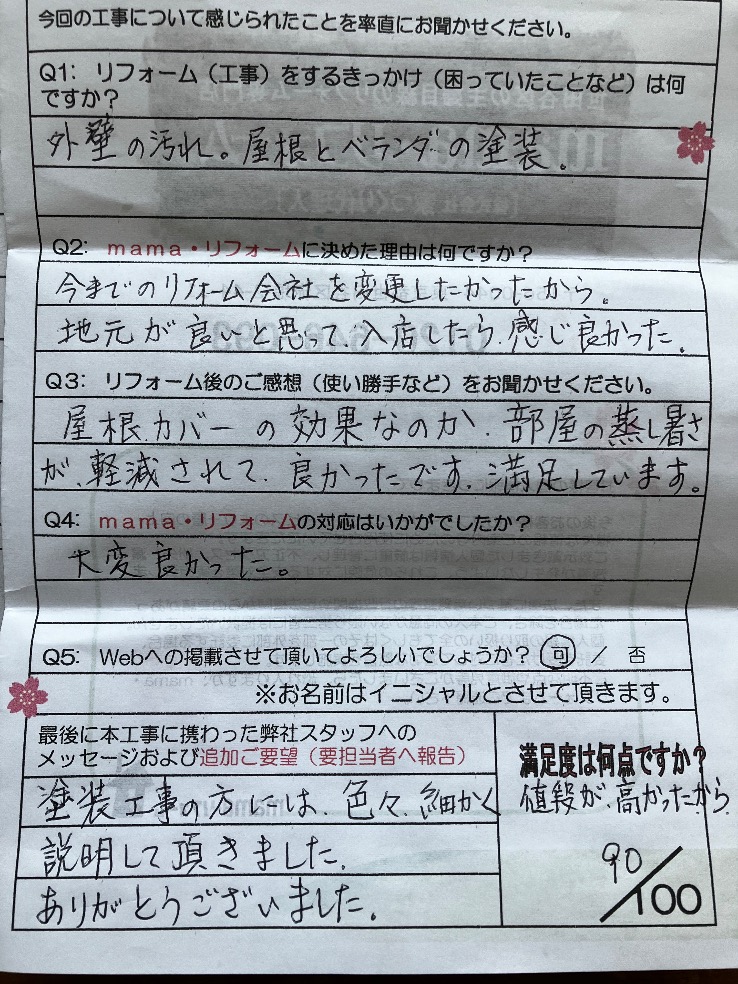 今回の工事について感じられたことを率直にお聞かせください。
Q1: リフォーム（工事）をするきっかけ（困っていたことなど）は何
ですか？
外壁の汚れ。屋根とベランダの塗装。
Q2: ｍａｍａ・リフォームに決めた理由は何ですか？
今までのリフォーム会社を変更したかったから。
地元が良いと思って、入店したら、感じ良かった。
Q3: リフォーム後のご感想（使い勝手など）をお聞かせください。
屋根カバーの効果なのか、部屋の蒸し暑さ
が、軽減されて、良かったです。満足しています。
Q4: ｍａｍａ・リフォームの対応はいかがでしたか？
大変良かった。
Q5: Webへの掲載させて頂いてよろしいでしょうか？ 可 ／ 否
※お名前はイニシャルとさせて頂きます。
最後に本工事に携わった弊社スタッフへの
メッセージおよび追加ご要望（要担当者へ報告）
塗装工事の方には、色々、細かく
説明して頂きました。
ありがとうございました。
満足度は何点ですか？
値段が、高かったから
90／100